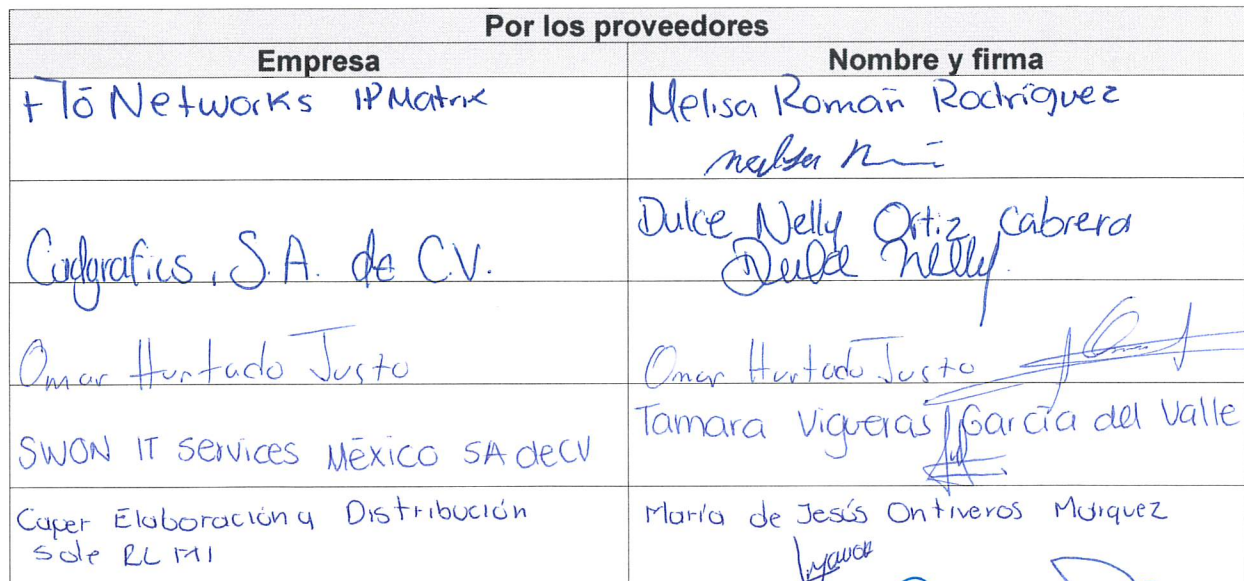 Por los proveedores
Empresa Nombre y firma
Networks IP Matrix Melisa Román Rodríguez
S.A. de C.V. Dulce Nelly Ortiz Cabrera
Dulce Nelly
Omar Hurtado Justo Omar Hurtado Justo
SWON IT Services México SA de CV Tamara Vigueras García del Valle
Caper Elaboración y Distribución María de Jesús Ontiveros Márquez
S de RL MI